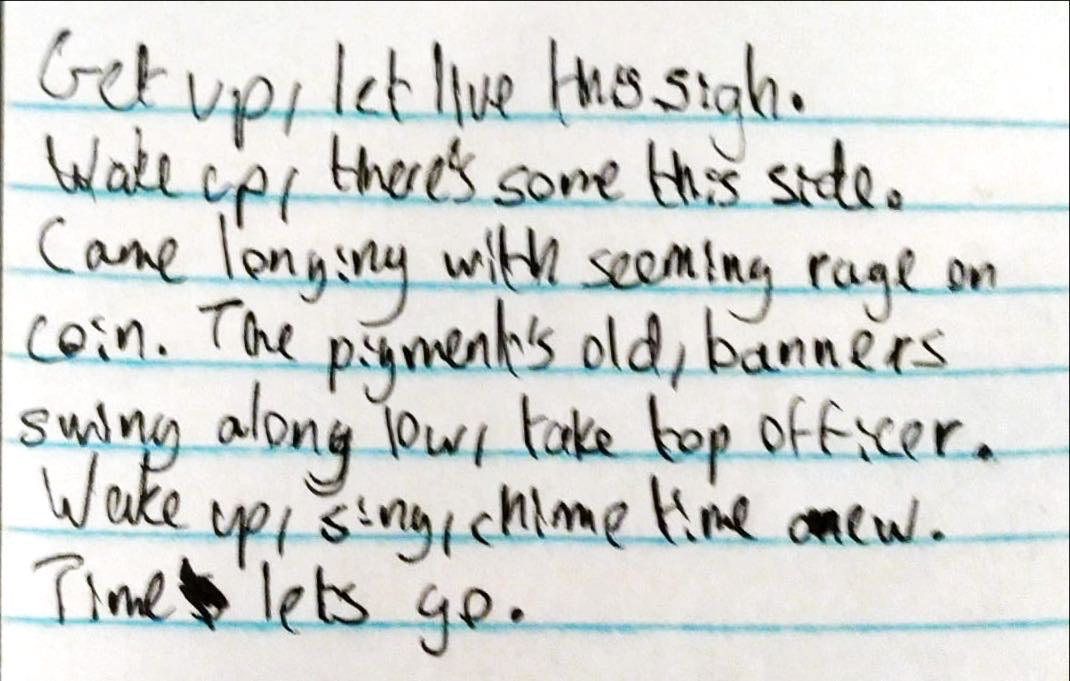 Get up, let live this sigh.
Wake up, there's some this side.
Came longing with seeming rage on
coin. The pigment's old, banners
swing along low, take top officer.
Wake up, sing, chime time anew.
Time lets go.